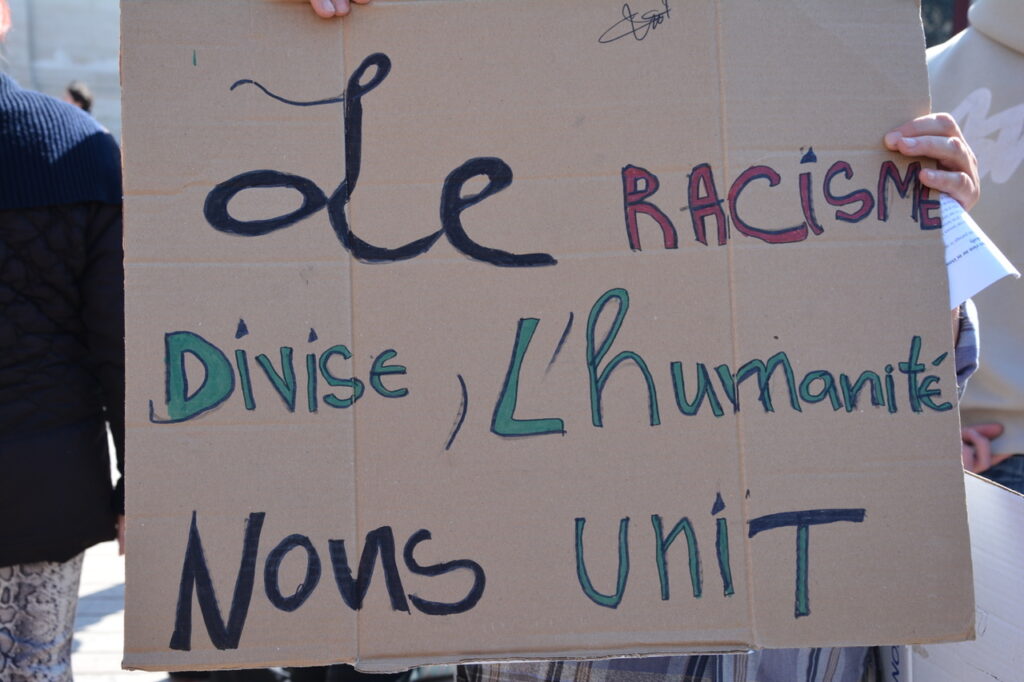 Le RACiSME
DiViSE, L'humanité
Nous UNiT